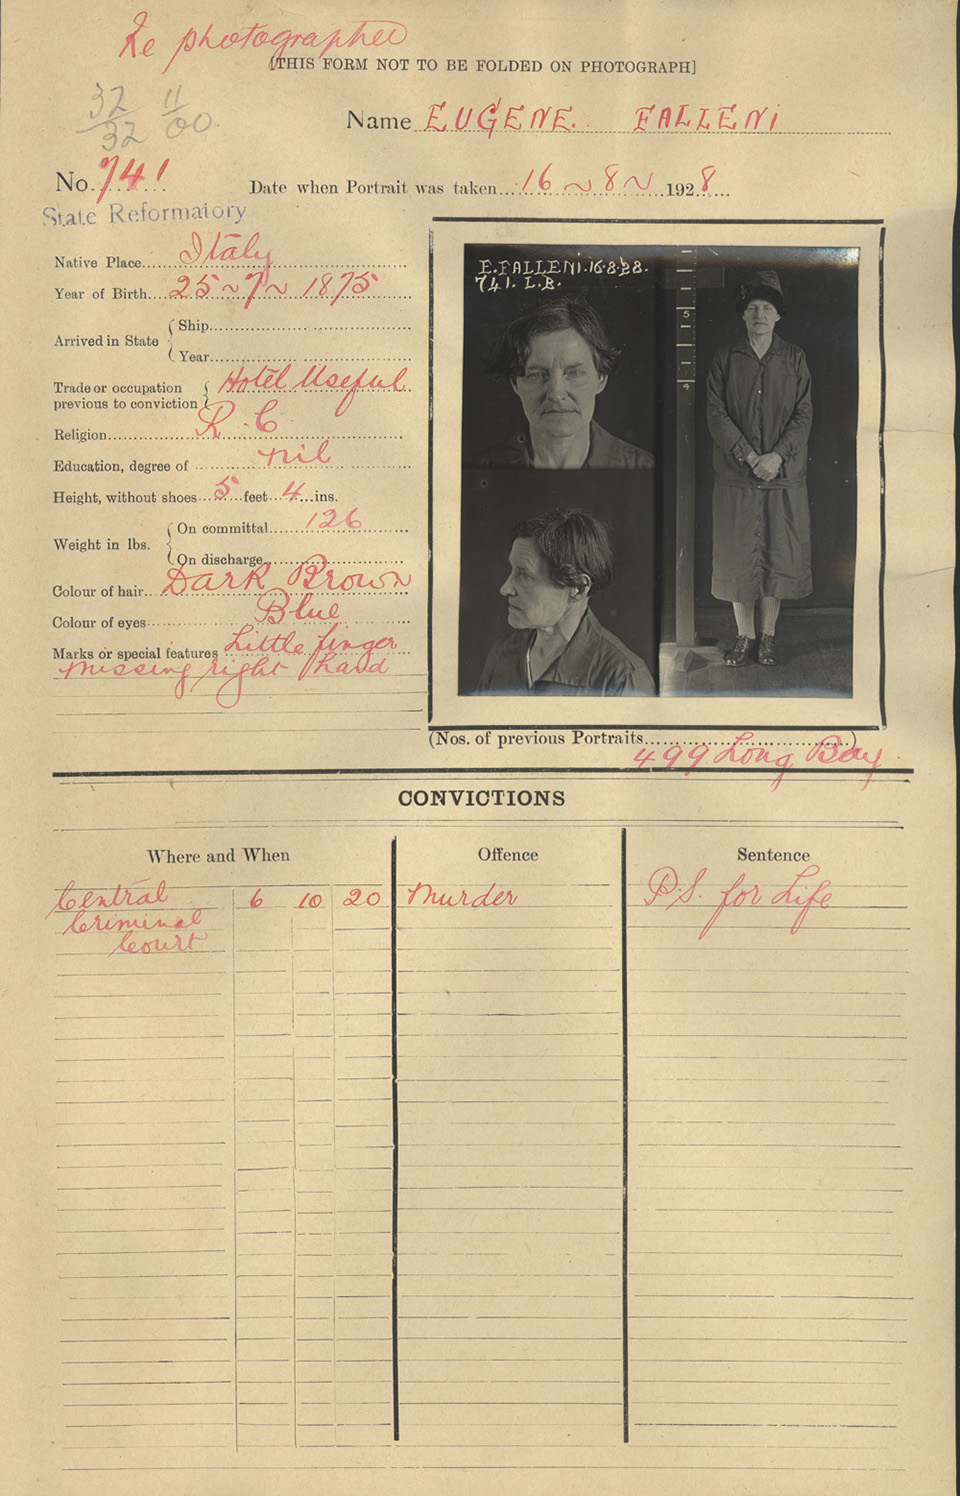 Re photographed
[THIS FORM NOT TO BE FOLDED ON PHOTOGRAPH]
32 11
32 00.
Name EUGENE. FALLENI
No. 741
Date when Portrait was taken 16 ~ 8 ~ 1928
State Reformatory
Native Place Italy
Year of Birth 25 ~ 7 ~ 1875
Arrived in State
Ship
Year
Trade or occupation previous to conviction Hotel Useful
Religion R.C
Education, degree of nil
Height, without shoes 5 feet 4 ins.
Weight in lbs.
On committal 126
On discharge
Colour of hair Dark Brown
Colour of eyes Blue
Marks or special features Little finger
missing right hand
E.FALLENI.16.8.28.
741. L.B.
5
4
(Nos. of previous Portraits )
499 Long Bay.
CONVICTIONS
Where and When Offence Sentence
Central 6 10 20 Murder P.S. for Life
Criminal
Court